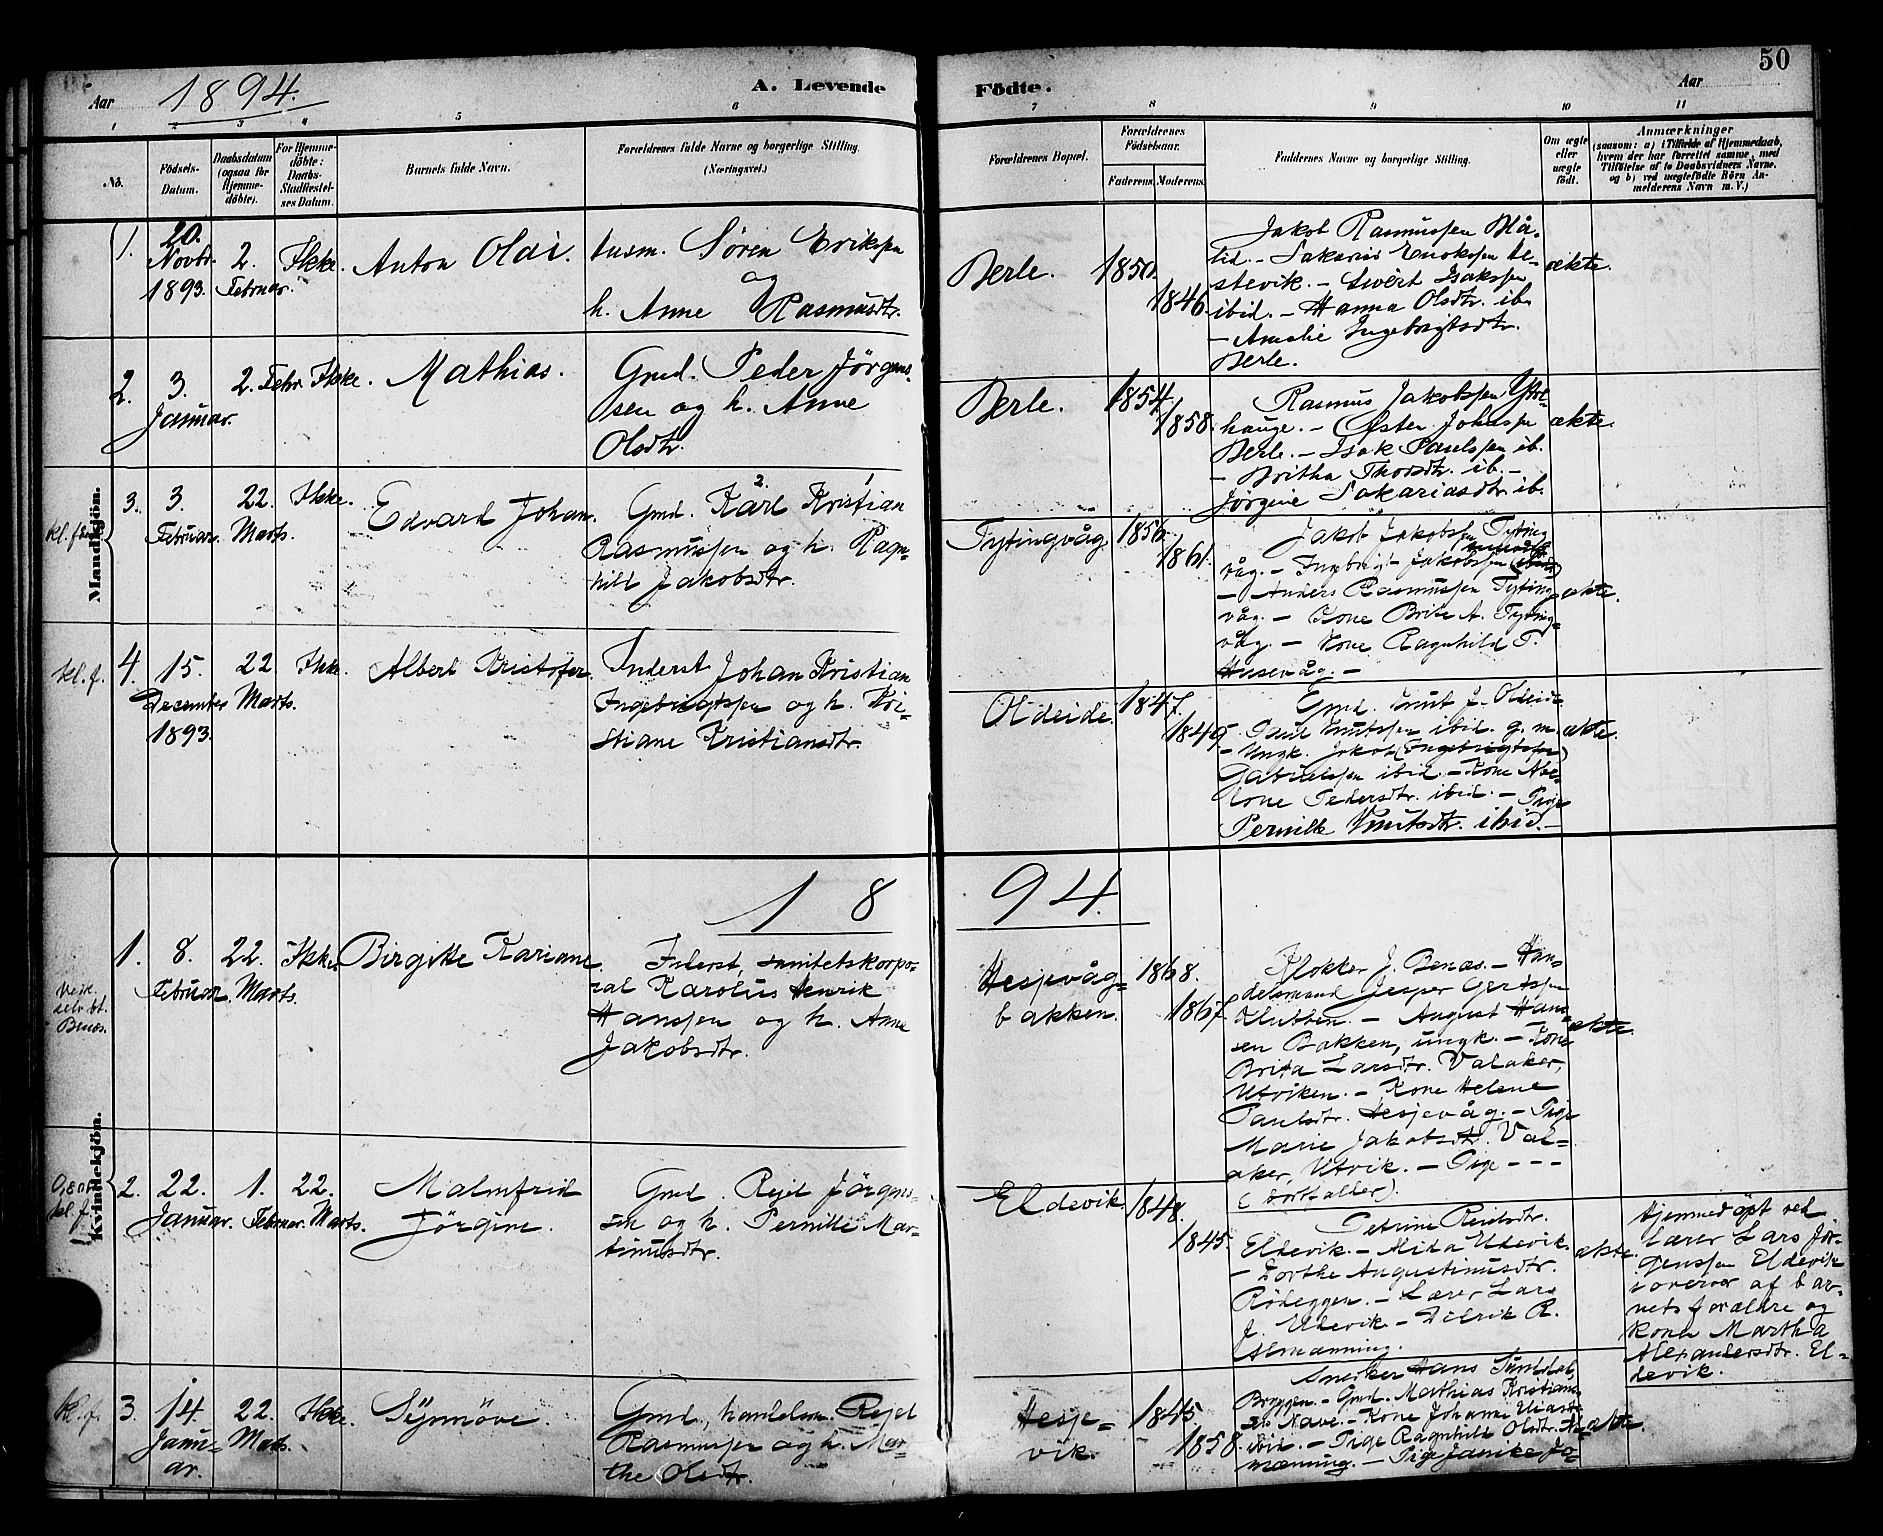 50
Aar 1894. A. Levende Födte. Aar
1 2 3 4 5 6 7 8 9 10 11
No.
Födsels-
Datum.
Daabsdatum
(ogsaa for
Hjemme-
döbte).
For Hjemme-
döbte:
Daabs-
Stadfæstel-
ses Datum.
Barnets fulde Navn.
Forældrenes fulde Navne og borgerlige Stilling.
(Næringsvei.)
Forældrenes Bopæl.
Forældrenes
Födselsaar.
Faderens. Moderens.
Faddernes Navne og borgerlige Stilling.
Om ægte
eller
uægte
født.
Anmærkninger
(saasom: a) i Tilfælde af Hjemmedaab,
hvem der har forrettet samme, med
Tilföielse af to Daabsvidners Navne.
og b) ved uægtefödte Börn An-
melderens Navn m. V.)
Mandkjön.
1.
20.
Novbr.
1893.
2.
Februar.
Ikke.
Anton Olai.
Husm. Sören Eriksen
og
h. Anne Rasmusdtr.
Berle.
1850.
1846.
Jakob Rasmussen Blå-
lid. - Sakarias Enoksen Le-
stevik. - Sivert Isaksen
ibid. - Hanna Olsdtr. ib.
- Amalie Ingebrigtsdtr.
Berle.
ækte.
2.
3.
Januar.
2. Febr.
Ikke.
Mathias.
Gmd. Peder Jörgens-
sen og h. Anne
Olsdtr.
Berle.
1854.
1858.
Rasmus Jakobsen Ytre-
hauge. - Østen Johnsen
Berle. - Isak Paulssen ib.
- Britha Thorsdtr. ib. -
Jörgine Sakariasdtr. ib.
ækte.
3.
3.
Februar.
22.
Marts.
Ikke.
Edvard Johan.
2. 1
Gmd. Karl Kristian
Rasmussen og h. Ragn-
hild Jakobsdtr.
Tytingvåg
1856.
1861.
Jakob Jakobsen Tyting-
våg. - Ingebrigt Jakobsen
- Anders Rasmussen Tyting-
våg. - Kone Brite A. Tyting-
våg. - Kone Ragnhild T.
Husevåg. -
ækte.
kl. f.
4.
15.
December
1893.
22.
Marts.
Ikke.
Albert Kristofer.
Inderst Johan Kristian
Ingebrigtsen og h. Kri-
stiane Kristiansdtr.
Oldeide.
1847.
1849.
Gmd. Knut J. Oldeide
- Paul Knutssen ibid. g. m.
- Ungk. Jakob (Ingebrigtsen)
Gabrielsen ibid. - Kone Abe-
lone Pedersdtr. ibid. - Pige
Pernille Knutsdtr. ibid. -
ækte.
1894.
Kvindekjön.
1.
8.
Februar.
22.
Marts.
Ikke.
Birgitte Kariane
Inderst, sanitetskorpo-
ral Karolus Henrik
Hanssen og h. Anne
Jakobsdtr.
Hesjevåg-
bakken.
1868.
1867.
Klokker J. Benæs. - Han-
delsmand Jesper Gertsen
Klubben. - August Hans-
sen Bakken, ungk. - Kone
Brita Larsdtr. Valaker,
Utviken. - Kone Helene
Paulsdtr. Hesjevåg. - Pige
Marie Jakobsdtr. Val-
aker, Utvik. - Pige - - -
(bortfalder).
ækte.
kl. f.
2.
22.
Januar.
1.
Februar.
22.
Marts.
Malmfrid
Jörgine.
Gmd. Reiel Jörgens-
sen og h. Pernille Mar-
tinusdtr.
Eldevik.
1848.
1845.
Petrine Reielsdtr.
Eldevik. - Alida Eldevik.
- Dorthe Augustinusdtr.
Rödeggen. - Lærer Lars
J. Eldevik. - Didrik R.
Almenning.
ækte.
Hjemmedöpt ved
Lærer Lars Jör-
genssen Eldevik
i overvær af bar-
nets forældre og
Kone Martha
Alexandersdtr. El-
devik.
kl. f.
3.
14.
Janu-
ar.
22.
Marts.
Ikke.
Synnöve.
Gmd., handelsm. Reiel
Rasmussen og h. Mar-
the Olsdtr.
Hesje-
vik.
1845.
1858.
Snedker Hans Sunddal,
Bryggen. - Gmd. Mathias Kristians-
sen Nave. - Kone Johanne Eliasdtr.
ibid. - Pige Ragnhild Olsdtr. Al-
menning. - Pige Janike Jo-
ækte.